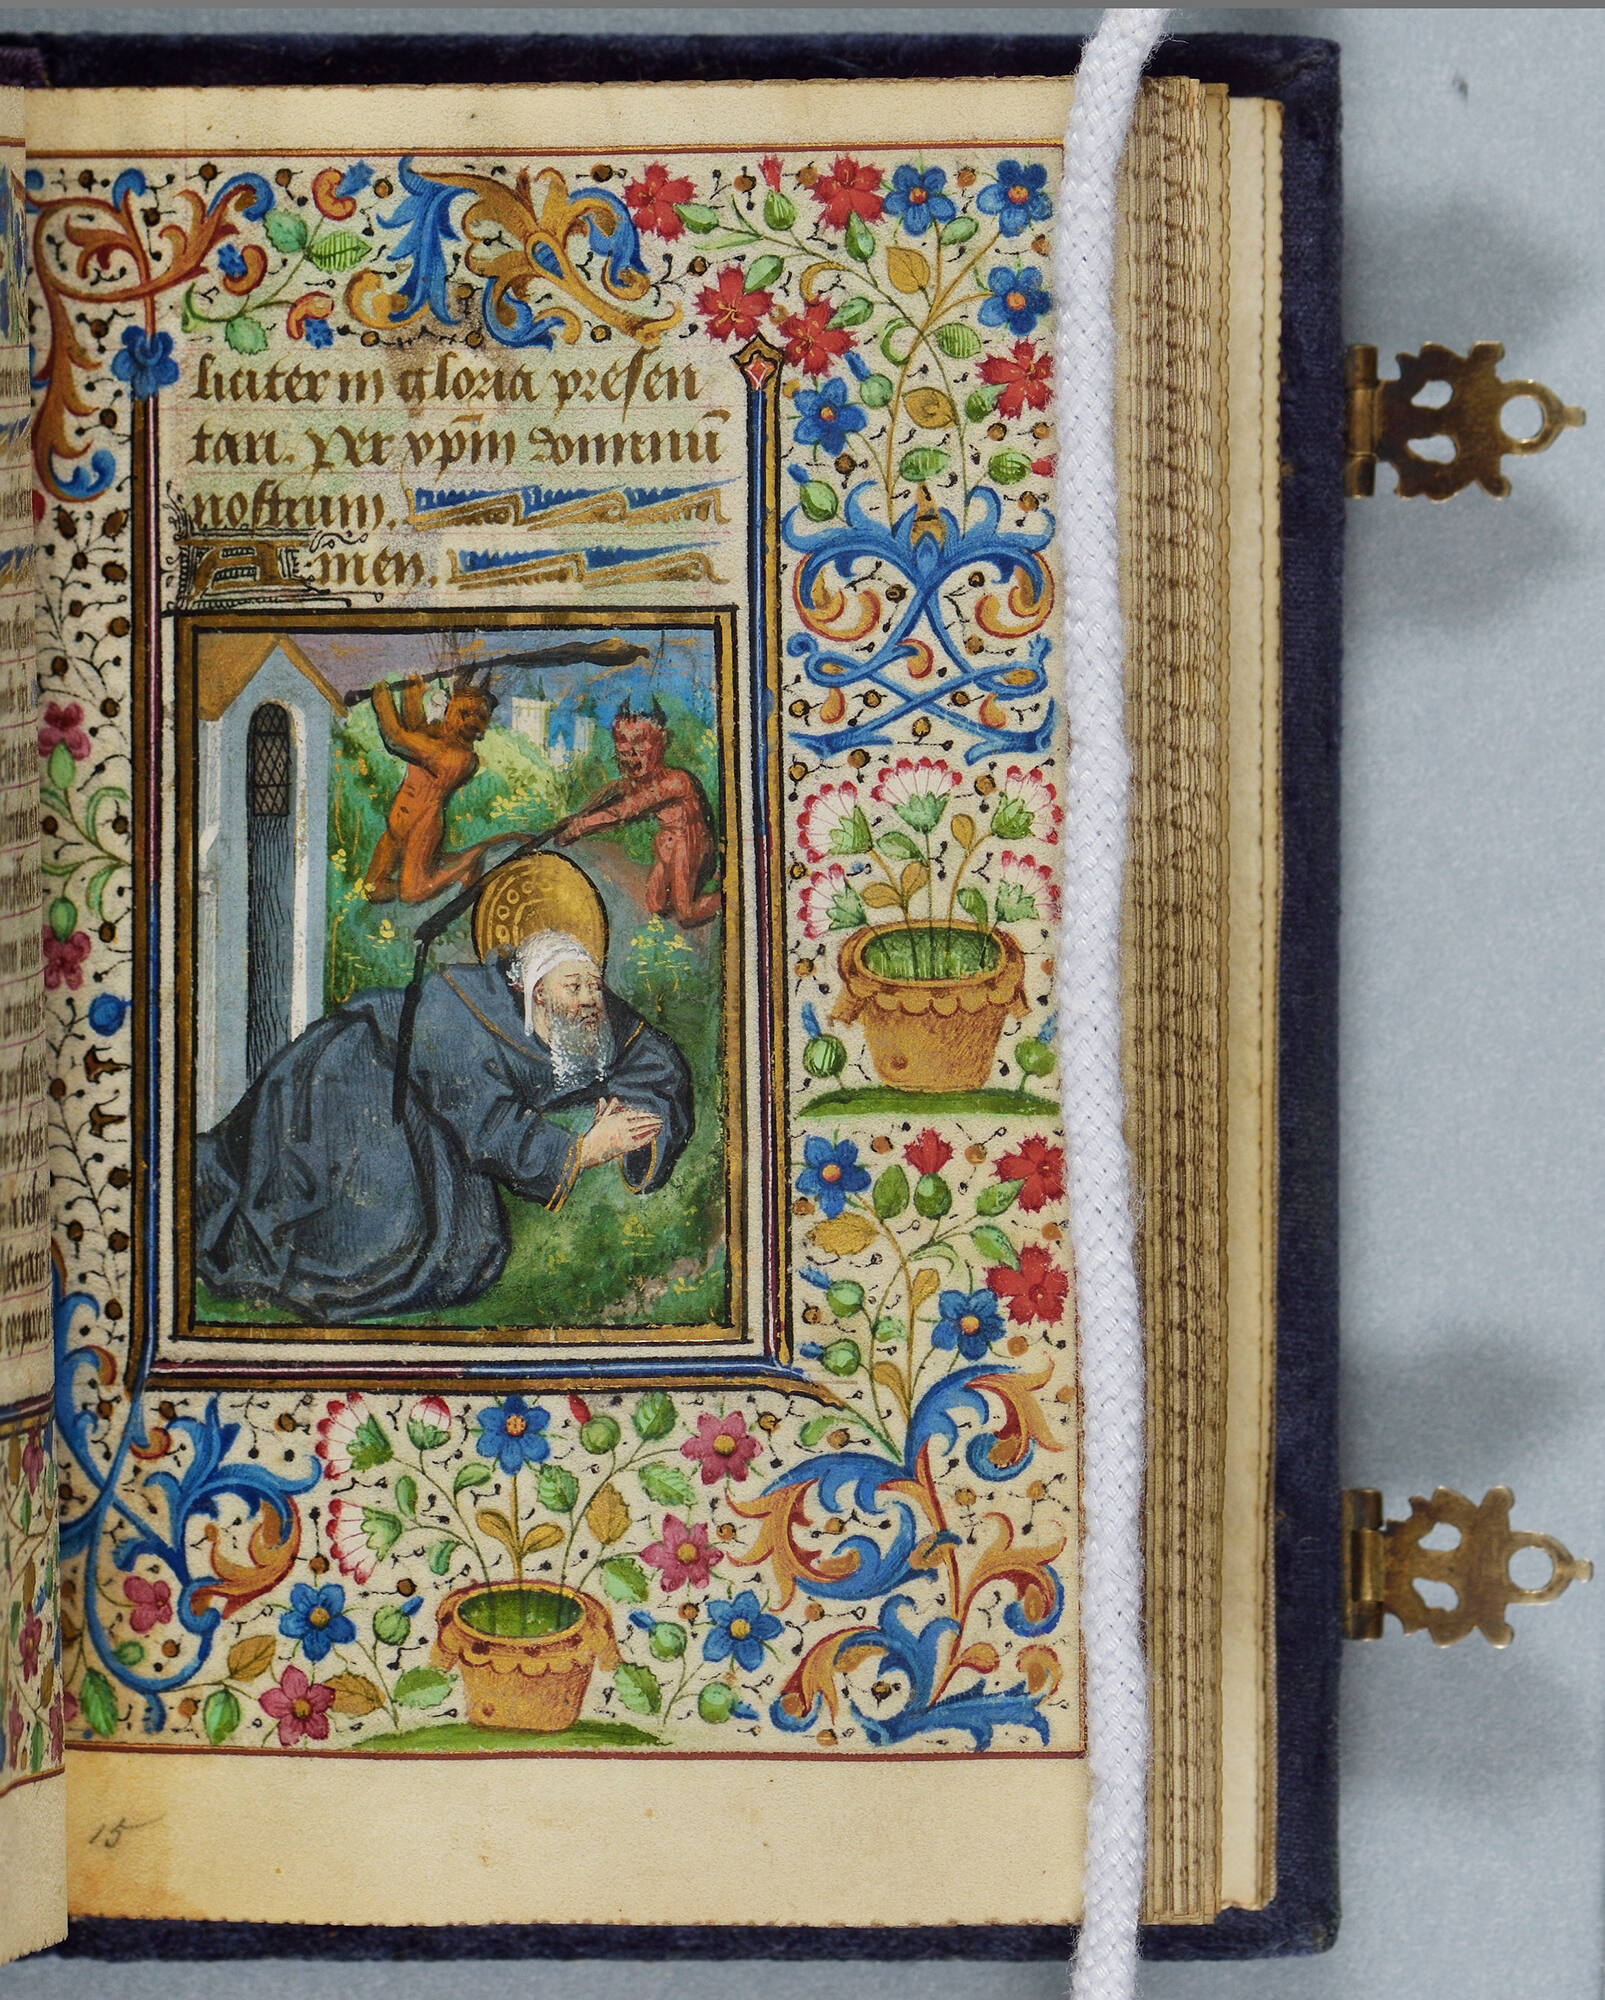 liciter in gloria presen
tari. Per xp̄m dominū
nostrum.
Amen.
15